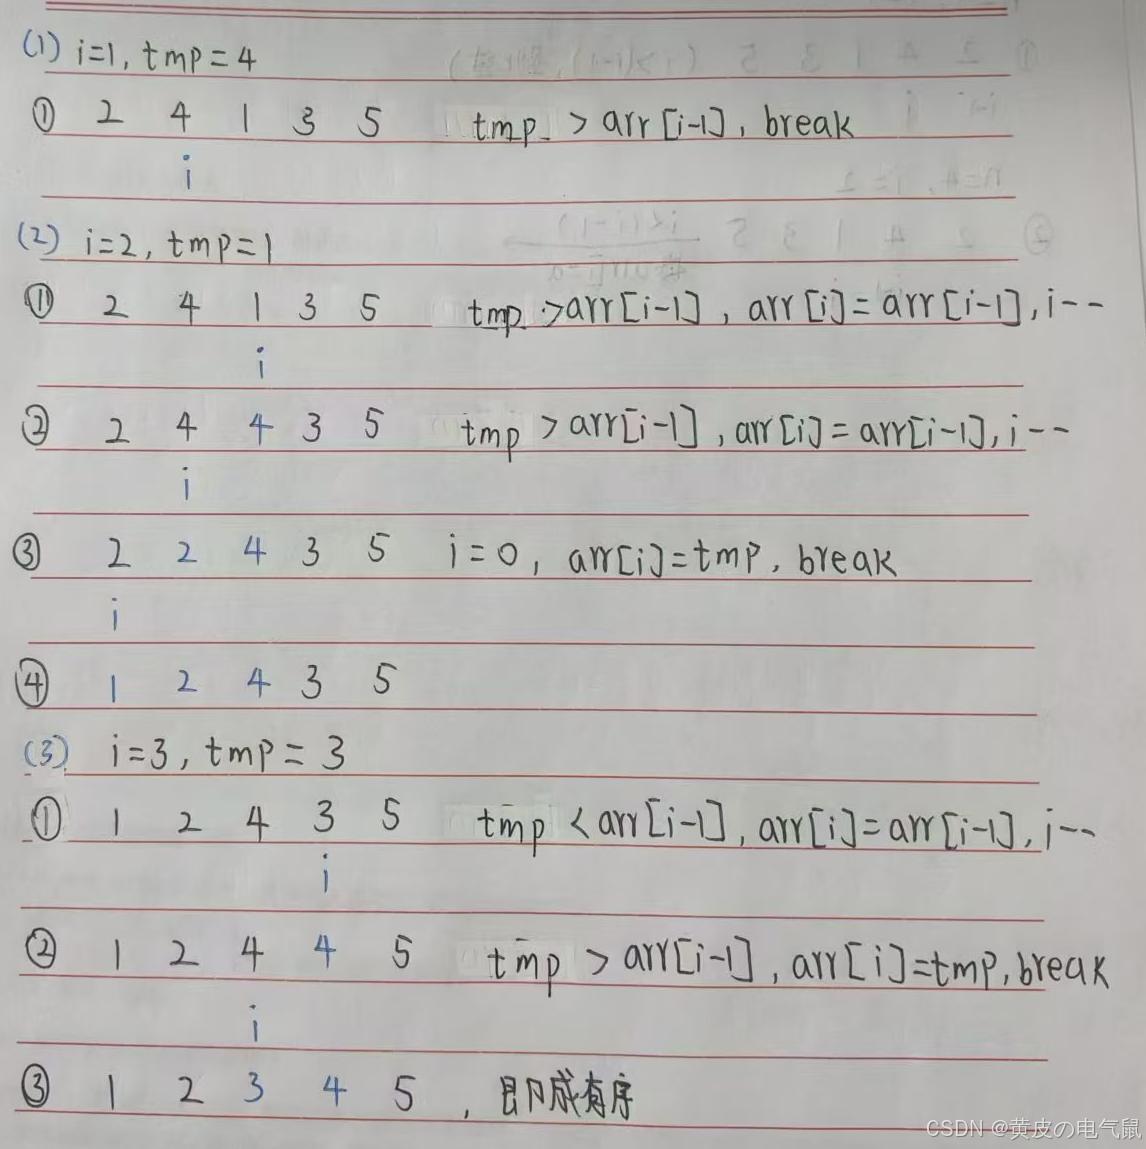 (1) i=1, tmp=4
① 2 4 1 3 5 tmp > arr[i-1], break
i
(2) i=2, tmp=1
① 2 4 1 3 5 tmp >arr[i-1], arr[i]=arr[i-1], i--
i
② 2 4 4 3 5 tmp > arr[i-1], arr[i]=arr[i-1], i--
i
③ 2 2 4 3 5 i=0, arr[i]=tmp, break
i
④ 1 2 4 3 5
(3) i=3, tmp=3
① 1 2 4 3 5 tmp <arr[i-1], arr[i]=arr[i-1], i--
i
② 1 2 4 4 5 tmp > arr[i-1], arr[i]=tmp, break
i
③ 1 2 3 4 5 , 即成有序
CSDN @黄皮の电气鼠